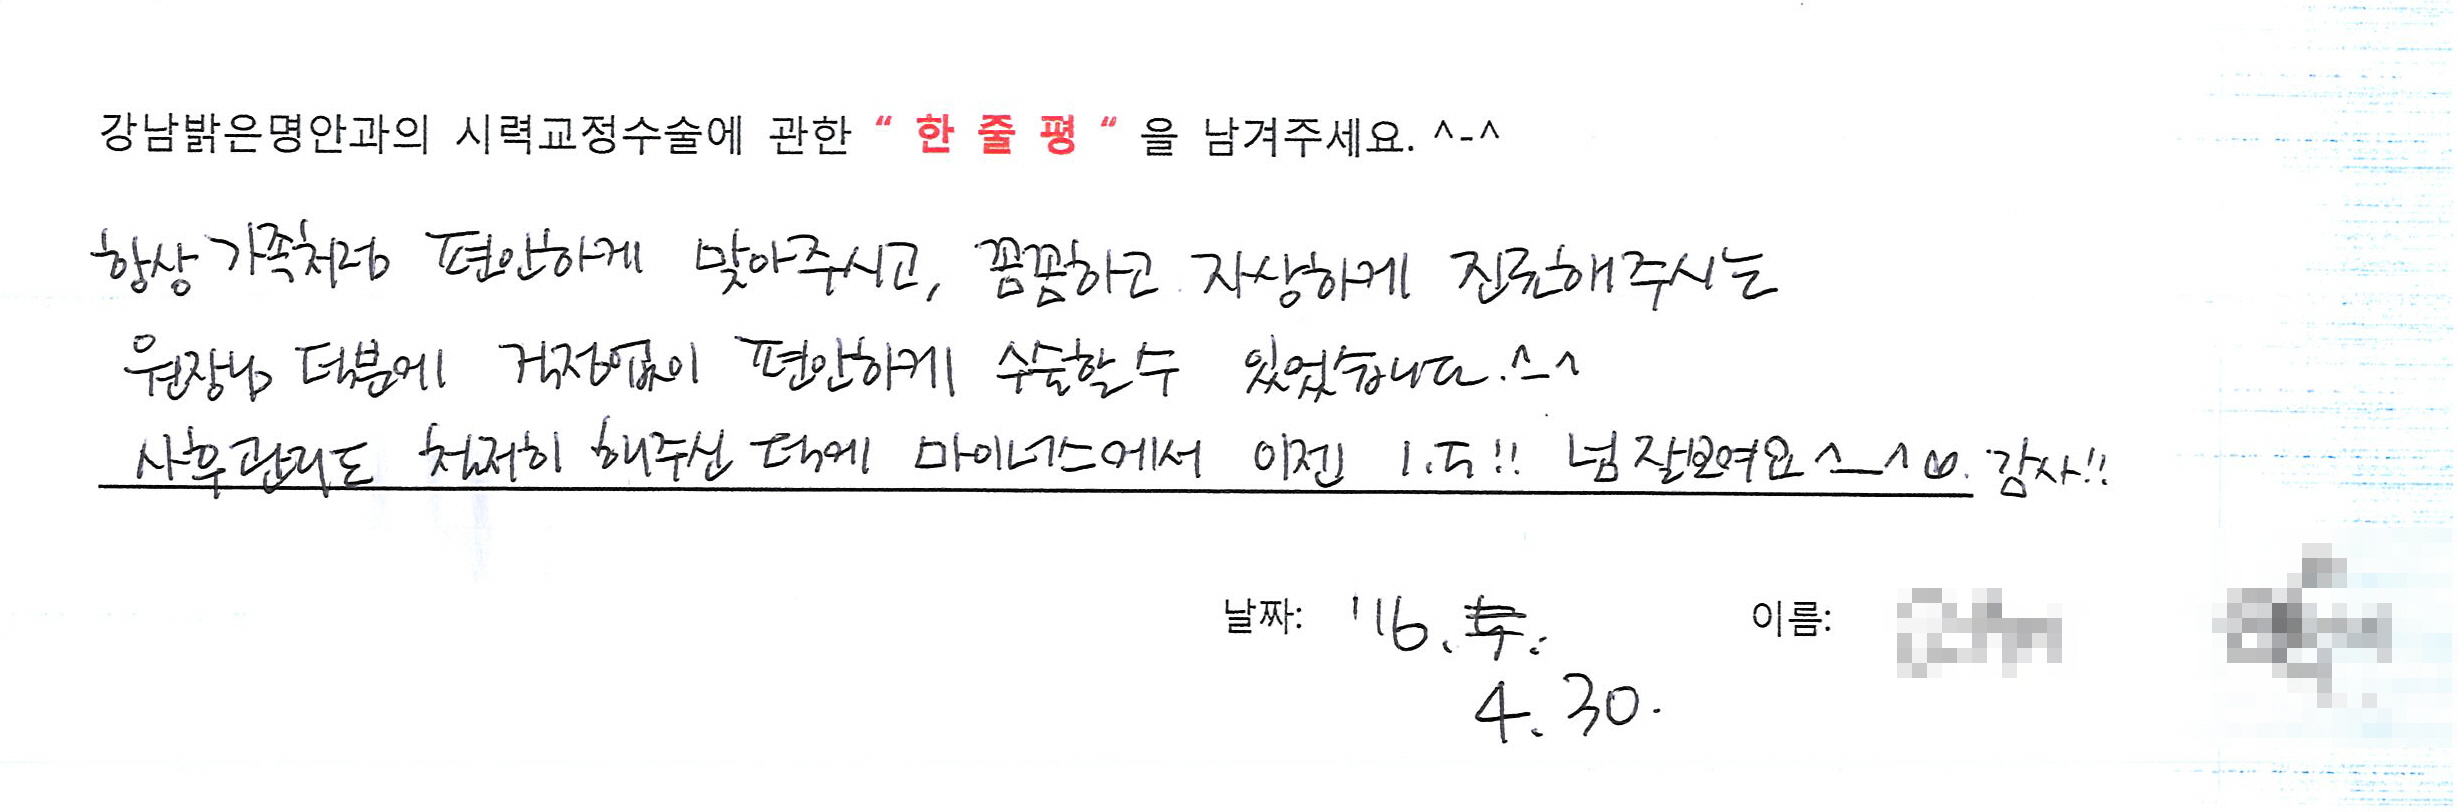 강남밝은명안과의 시력교정수술에 관한 “ 한 줄 평 “ 을 남겨주세요. ^-^
항상 가족처럼 편안하게 맞아주시고, 꼼꼼하고 자상하게 진료해주시는
원장님 덕분에 걱정없이 편안하게 수술할 수 있었습니다.^-^
사후관리도 철저히 해주신 덕에 마이너스에서 이젠 1.5!! 넘 잘보여요^__^♡. 감사!!
날짜: '16. 이름:
4. 30.